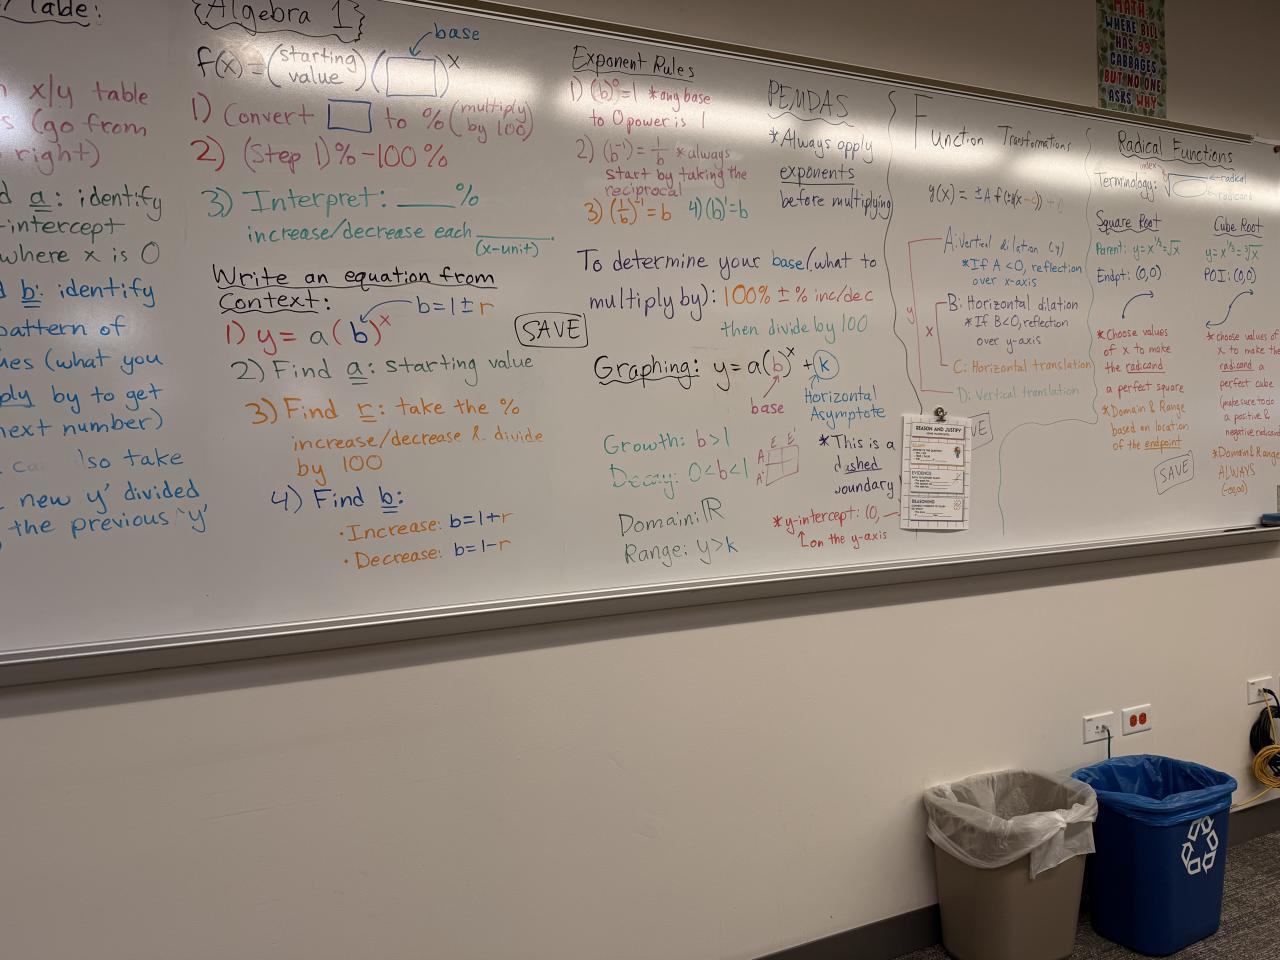 Table:
x/y table
(go from
right)
a: identify
-intercept
where x is 0
b: identify
pattern of
(what you
by to get
next number)
also take
new y' divided
the previous 'y'
Algebra 1
base
f(x) = (starting value)(□)^x
1) Convert □ to % (multiply by 100)
2) (Step 1)% - 100%
3) Interpret: ____%
increase/decrease each ____
(x-unit).
Write an equation from
Context:
b = 1 ± r
1) y = a(b)^x
2) Find a: starting value
3) Find r: take the %
increase/decrease & divide
by 100
4) Find b:
· Increase: b=1+r
· Decrease: b=1-r
SAVE
Exponent Rules
1) (b)^0 = 1 *any base
to 0 power is 1
2) (b^-1) = 1/b *always
start by taking the
reciprocal
3) (1/b)^-1 = b 4) (b)^1 = b
PEMDAS
*Always apply
exponents
before multiplying
To determine your base (what to
multiply by): 100% ± % inc/dec
then divide by 100
Graphing: y = a(b)^x + k
base
Horizontal
Asymptote
Growth: b>1
Decay: 0<b<1
E E'
A
A'
*This is a
dashed
boundary
Domain: ℝ
Range: y>k
*y-intercept: (0,
on the y-axis
Function Transformations
g(x) = ±A f(
A: Vertical dilation (y)
*If A<0, reflection
over x-axis
B: Horizontal dilation
*If B<0, reflection
over y-axis
C: Horizontal translation
D: Vertical translation
y
x
REASON AND JUSTIFY
EVIDENCE
REASONING
Radical Functions
index
Terminology:
radical
radicand
Square Root
Parent: y = x^1/2 = √x
Endpt: (0,0)
*Choose values
of x to make
the radicand
a perfect square
*Domain & Range
based on location
of the endpoint
SAVE
Cube Root
y = x^1/3 = ∛x
POI: (0,0)
*choose values of
x to make the
radicand a
perfect cube
(make sure to do
a positive &
negative radicand
*Domain & Range
ALWAYS
(-∞,∞)
MATH:
WHERE BILL
HAS 99
CABBAGES
BUT NO ONE
ASKS WHY